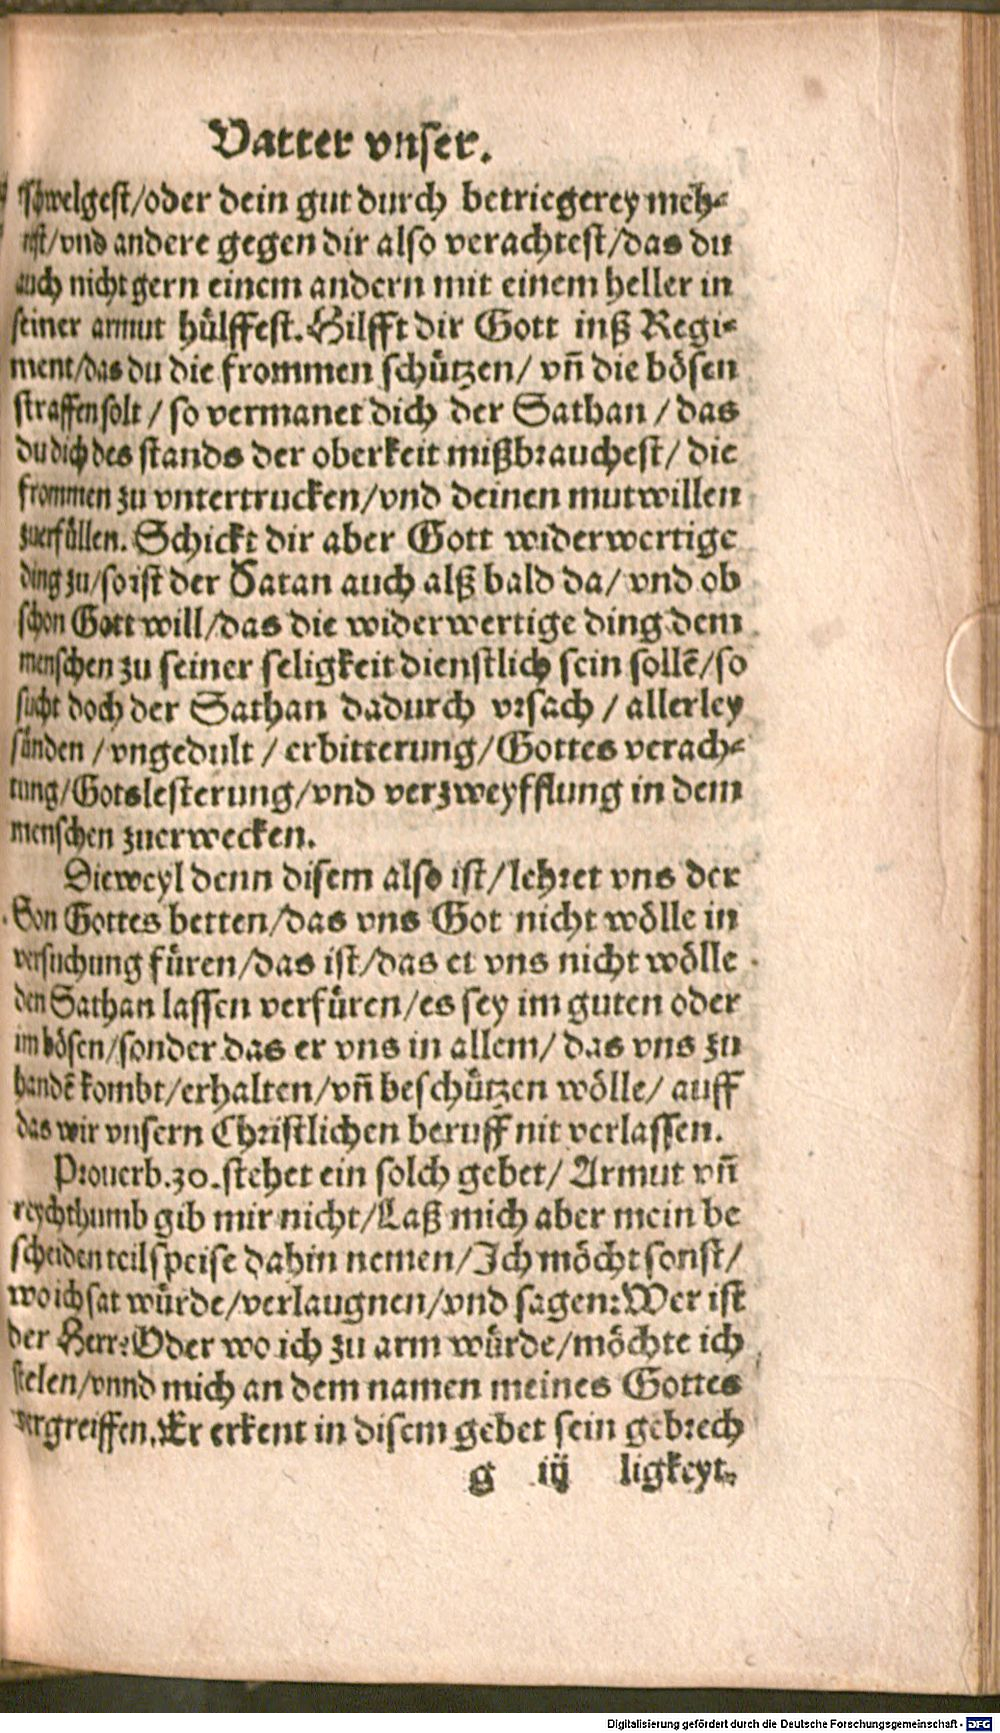 Vatter vnser.
schwelgest/oder dein gut durch betriegerey meh-
rest/vnd andere gegen dir also verachtest/das du
auch nicht gern einem andern mit einem heller in
seiner armut hülffest. Hilfft dir Gott inß Regi-
ment/das du die frommen schützen/ vn̄ die bösen
straffen solt / so vermanet dich der Sathan / das
du dich des stands der oberkeit mißbrauchest/ die
frommen zu vntertrucken/vnd deinen mutwillen
zuerfüllen. Schickt dir aber Gott widerwertige
ding zu/so ist der Satan auch alß bald da/ vnd ob
schon Gott will/das die widerwertige ding dem
menschen zu seiner seligkeit dienstlich sein sollē/so
sucht doch der Sathan dadurch vrsach / allerley
sünden / vngedult / erbitterung/Gottes verach-
tung/Gotslesterung/vnd verzweyfflung in dem
menschen zuerwecken.
Dieweyl denn disem also ist/lehret vns der
Son Gottes betten/das vns Got nicht wölle in
versuchung füren/das ist/das er vns nicht wölle
den Sathan lassen verfüren/es sey im guten oder
im bösen/sonder das er vns in allem/ das vns zu
handē kombt/erhalten/vn̄ beschützen wölle/ auff
das wir vnsern Christlichen beruff nit verlassen.
Prouerb.30.stehet ein solch gebet/ Armut vn̄
reychthumb gib mir nicht/Laß mich aber mein be
scheiden teil speise dahin nemen/Ich möcht sonst/
wo ich sat würde/verlaugnen/vnd sagen: Wer ist
der Herr? Oder wo ich zu arm würde/möchte ich
stelen/vnnd mich an dem namen meines Gottes
vergreiffen. Er erkent in disem gebet sein gebrech
g iij ligkeyt.
Digitalisierung gefördert durch die Deutsche Forschungsgemeinschaft - DFG